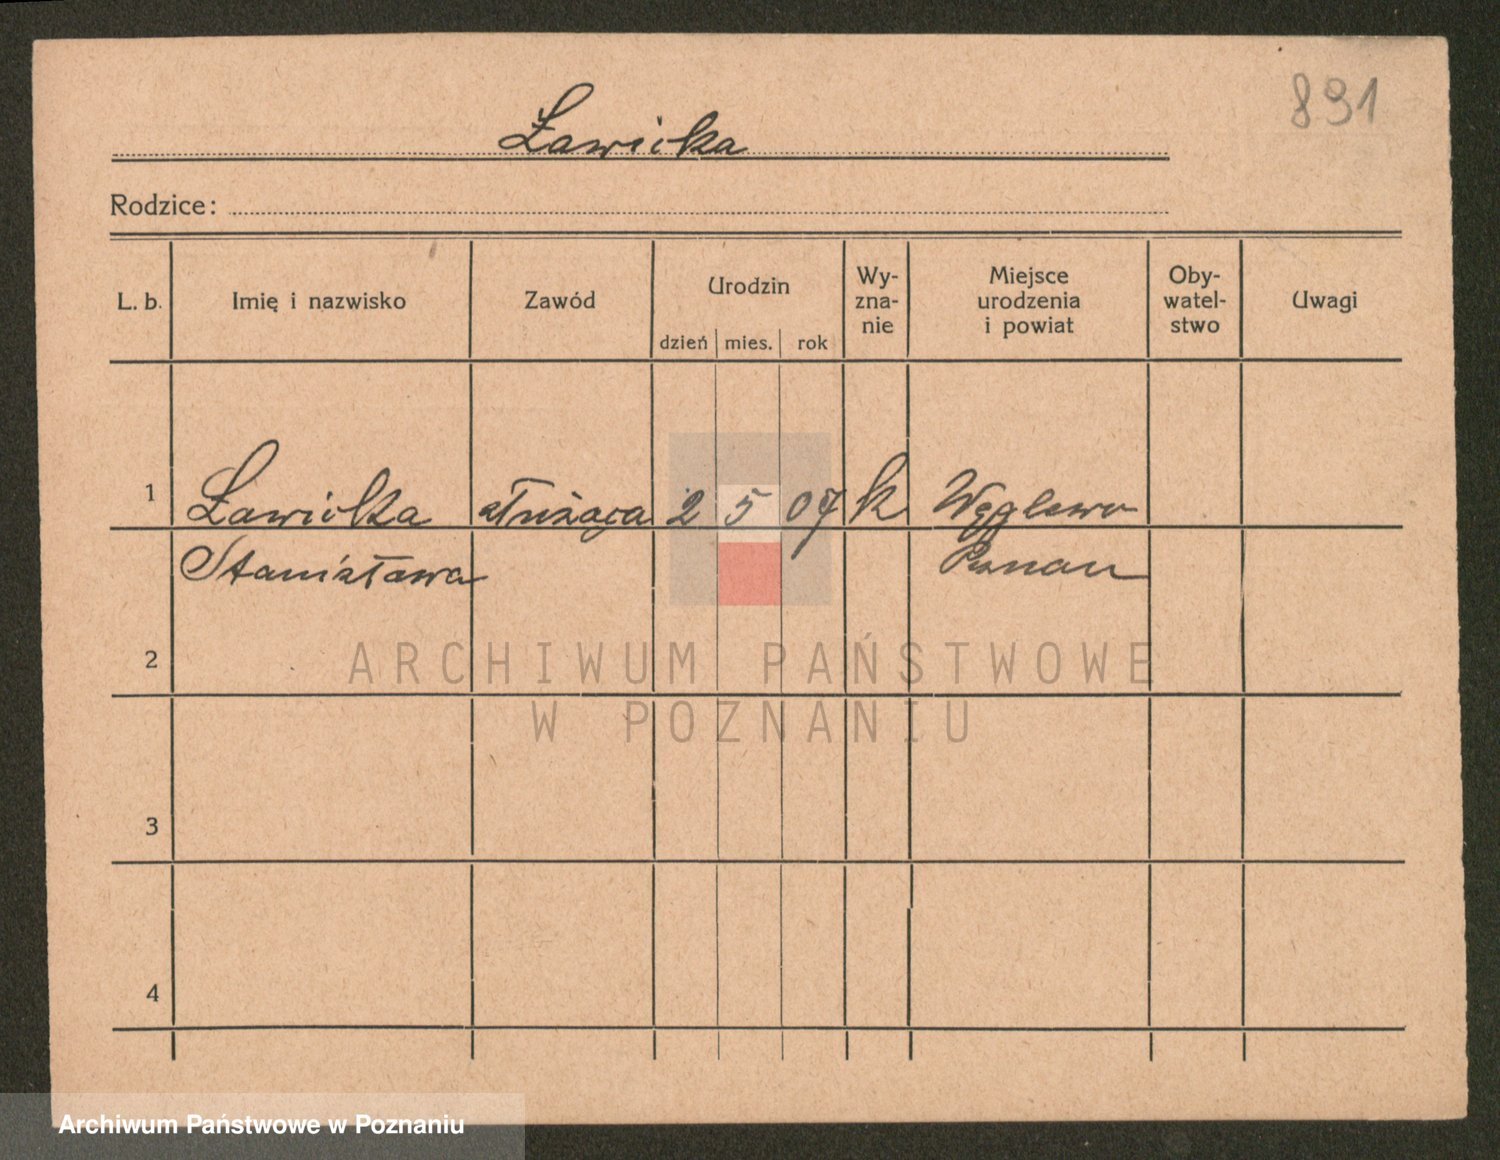 891
Ławicka
Rodzice:
L. b.
Imię i nazwisko
Zawód
Urodzin
dzień
mies.
rok
Wy-
zna-
nie
Miejsce
urodzenia
i powiat
Oby-
watel-
stwo
Uwagi
1
Ławicka
Stanisława
służąca
2
5
07
k
Węglewo
Poznań
2
3
4
ARCHIWUM PAŃSTWOWE
W POZNANIU
Archiwum Państwowe w Poznaniu